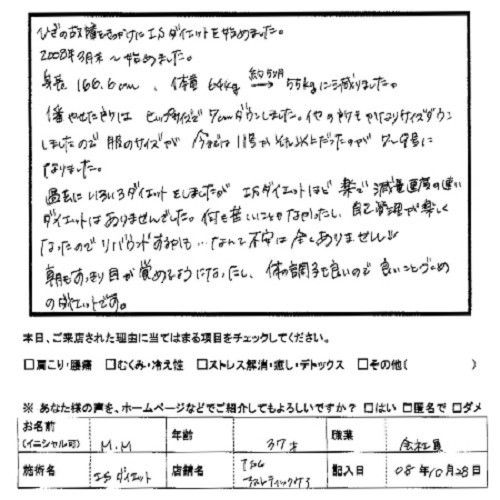 ひざの故障をきっかけにエSダイエットを始めました。
2008年3月末〜始めました。
身長 166.6cm、体重 64kg 約5ヶ月→ 55kgに減りました。
1番やせたきりは ヒップサイズで7cmダウンしました。他のきりもかなりサイズダウン
しましたので 服のサイズが 今までは11号かそれ以上だったのが 7〜9号に
なりました。
過去にいろいろダイエットをしましたが ダイエットほど 楽で減量速度の速い
ダイエットはありませんでした。何も苦しいことがなかったし、自己管理が楽しく
なったのでリバウンドするかも…なんて不安は全くありません
朝もすっきり目が覚めるようになったし、体の調子も良いので 良いことづくめ
のダイエットです。
本日、ご来店された理由に当てはまる項目をチェックしてください。
□肩こり・腰痛 □むくみ・冷え性 □ストレス解消・癒し・デトックス □その他( )
※ あなた様の声を、ホームページなどでご紹介してもよろしいですか? □はい □匿名で □ダメ
お名前(イニシャル可) M.M 年齢 37才 職業 会社員
施術名 ダイエット 店舗名 記入日 08年10月28日